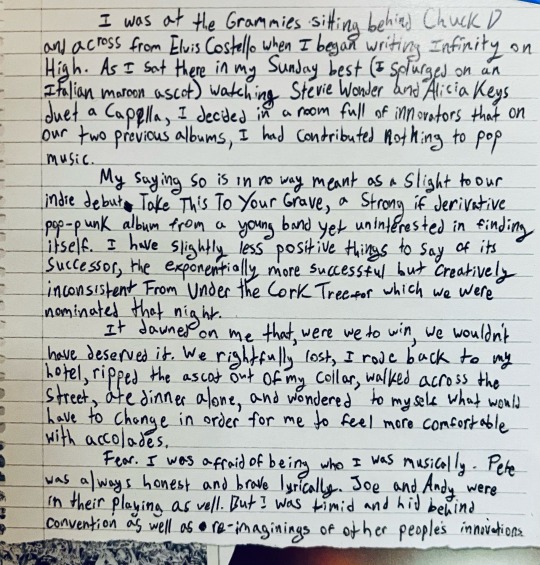 I was at the Grammies sitting behind Chuck D
and across from Elvis Costello when I began writing Infinity on
High. As I sat there in my Sunday best (I splurged on an
Italian maroon ascot) watching Stevie Wonder and Alicia Keys
duet a Capella, I decided in a room full of innovators that on
our two previous albums, I had contributed nothing to pop
music.
My saying so is in no way meant as a slight to our
indie debut Take This To Your Grave, a strong if derivative
pop-punk album from a young band yet uninterested in finding
itself. I have slightly less positive things to say of its
successor, the exponentially more successful but creatively
inconsistent From Under the Cork Tree for which we were
nominated that night.
It dawned on me that, were we to win, we wouldn't
have deserved it. We rightfully lost, I rode back to my
hotel, ripped the ascot out of my collar, walked across the
street, ate dinner alone, and wondered to myself what would
have to change in order for me to feel more comfortable
with accolades.
Fear. I was afraid of being who I was musically. Pete
was always honest and brave lyrically. Joe and Andy were
in their playing as well. But I was timid and hid behind
convention as well as re-imaginings of other people's innovations